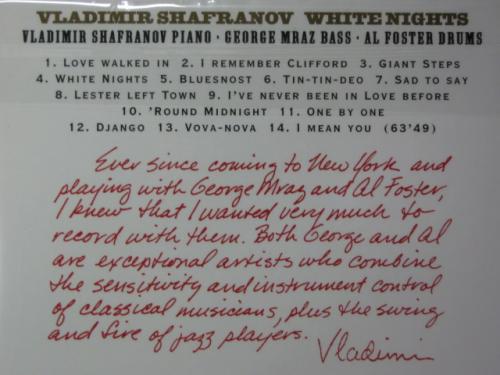 VLADIMIR SHAFRANOV WHITE NIGHTS
VLADIMIR SHAFRANOV PIANO · GEORGE MRAZ BASS · AL FOSTER DRUMS
1. LOVE WALKED IN 2. I REMEMBER CLIFFORD 3. GIANT STEPS
4. WHITE NIGHTS 5. BLUESNOST 6. TIN-TIN-DEO 7. SAD TO SAY
8. LESTER LEFT TOWN 9. I'VE NEVER BEEN IN LOVE BEFORE
10. 'ROUND MIDNIGHT 11. ONE BY ONE
12. DJANGO 13. VOVA-NOVA 14. I MEAN YOU (63'49)
Ever since coming to New York and
playing with George Mraz and Al Foster,
I knew that I wanted very much to
record with them. Both George and Al
are exceptional artists who combine
the sensitivity and instrument control
of classical musicians, plus the swing
and fire of jazz players.
Vladimir